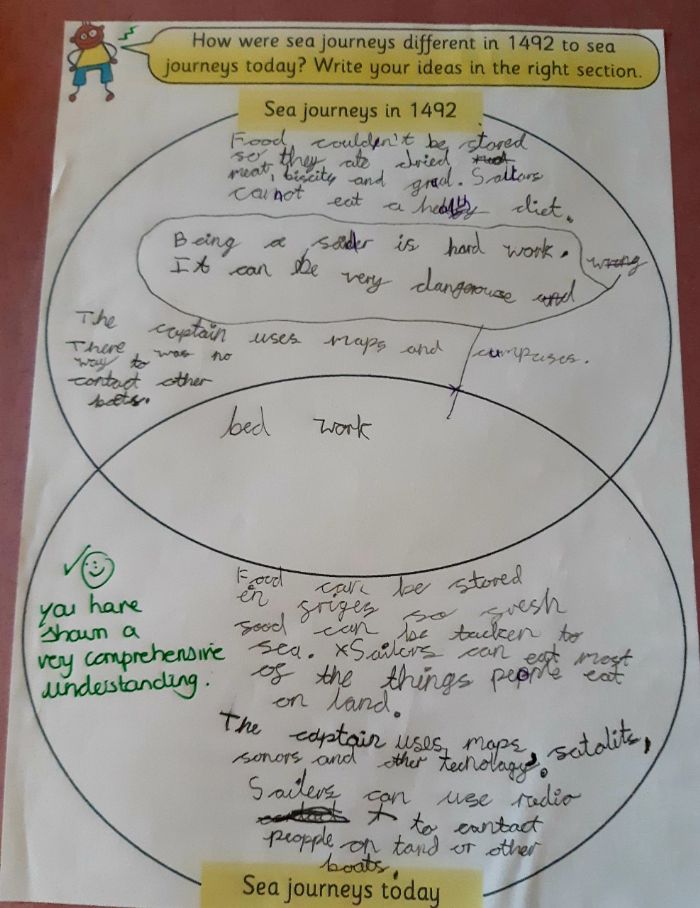 How were sea journeys different in 1492 to sea
journeys today? Write your ideas in the right section.
Sea journeys in 1492
Food couldn't be stored
so they ate dried
meat, biscits and
Sailors
cannot eat a healthy diet.
Being a sailor is hard work.
It can be very dangerouse and
wrong
The captain uses maps and cumpuses.
There was no
way to
contact other
boats.
bed work
Food can be stored
en griges so gresh
good can be tacken to
sea. Sailers can eat most
of the things people eat
on land.
The captain uses maps, satalits,
sonors and other technolagy.
Sailers can use radio
to contact
peopple on land or other
boats.
you have
shown a
very comprehensive
understanding.
Sea journeys today